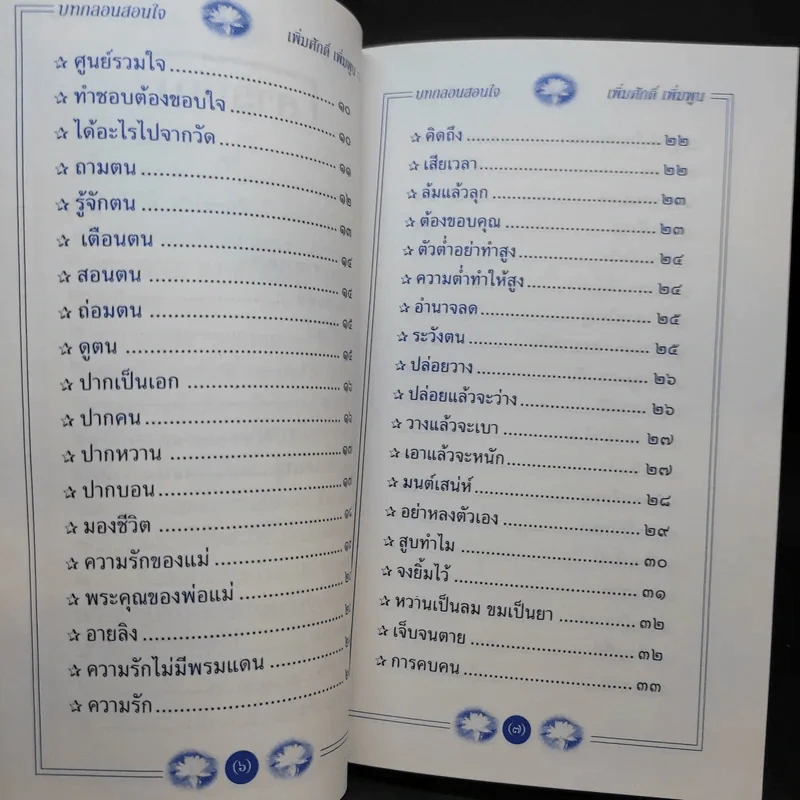 บทกลอนสอนใจ
เพิ่มศักดิ์ เพิ่มพูน
✰ ศูนย์รวมใจ
✰ ทำชอบต้องขอบใจ ๑๐
✰ ได้อะไรไปจากวัด ๑๐
✰ ถามตน ๑๑
✰ รู้จักตน ๑๒
✰ เตือนตน ๑๓
✰ สอนตน ๑๔
✰ ถ่อมตน ๑๔
✰ ดูตน ๑๕
✰ ปากเป็นเอก ๑๕
✰ ปากคน ๑๖
✰ ปากหวาน ๑๖
✰ ปากบอน ๑๗
✰ มองชีวิต ๑๗
✰ ความรักของแม่
✰ พระคุณของพ่อแม่
✰ อายลิง
✰ ความรักไม่มีพรมแดน
✰ ความรัก
(๖)
บทกลอนสอนใจ
เพิ่มศักดิ์ เพิ่มพูน
✰ คิดถึง ๒๒
✰ เสียเวลา ๒๒
✰ ล้มแล้วลุก ๒๓
✰ ต้องขอบคุณ ๒๓
✰ ตัวต่ำอย่าทำสูง ๒๔
✰ ความต่ำทำให้สูง ๒๔
✰ อำนาจลด ๒๕
✰ ระวังตน ๒๕
✰ ปล่อยวาง ๒๖
✰ ปล่อยแล้วจะว่าง ๒๖
✰ วางแล้วจะเบา ๒๗
✰ เอาแล้วจะหนัก ๒๗
✰ มนต์เสน่ห์ ๒๘
✰ อย่าหลงตัวเอง ๒๙
✰ สูบทำไม ๓๐
✰ จงยิ้มไว้ ๓๑
✰ หวานเป็นลม ขมเป็นยา ๓๒
✰ เจ็บจนตาย ๓๒
✰ การคบคน ๓๓
(๗)